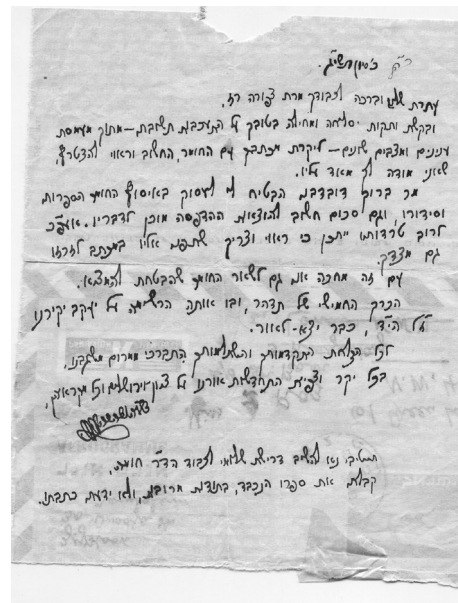 ב"ה, כ' סיון תשי"ג.
עתרת שלום וברכה לכבודך מרת צפורה רז,
ובקשת ותקות יסליחה ומחילה בטובך על התעכבות תשובתי, – מתוך מעמסת
ענינים ומצבים שונים – ליקרת מכתבך עם החומר, החשוב וראוי להצטרף,
שאני מודה לך מאד עליו.
מר ברוך דובדבני הבטיח לי לעסוק באיסוף החומר הספרות
וסידורו, וגם סכום חשוב להוצאות ההדפסה מוכן לדבריו. אעפ"כ
לרוב טרדותיו ייתכן כי ראוי וצריך שתפנה אליו במכתב לזרזו
גם מצדך.
עם זה מחכה אני גם לשאור החומר שהבטחת להמציא.
הכרך החמישי של תדהר, ובו אותה הרשימה על יעקב יקירנו
ז"ל הי"ד, כבר יצא-לאור.
לכל הצלחת התקדמותך והשתלמותך התברכי ממרום משגבנו,
בכל יקר וצפית התחדשות אורנו על ציון וירושלים וכל מקראיה,
תיטיבי נא להשיב דרישת שלומי לכבוד הד"ר
קבלתי את ספרו הנכבד, בתודות מרובות, ולא ידעתי כתבתו.